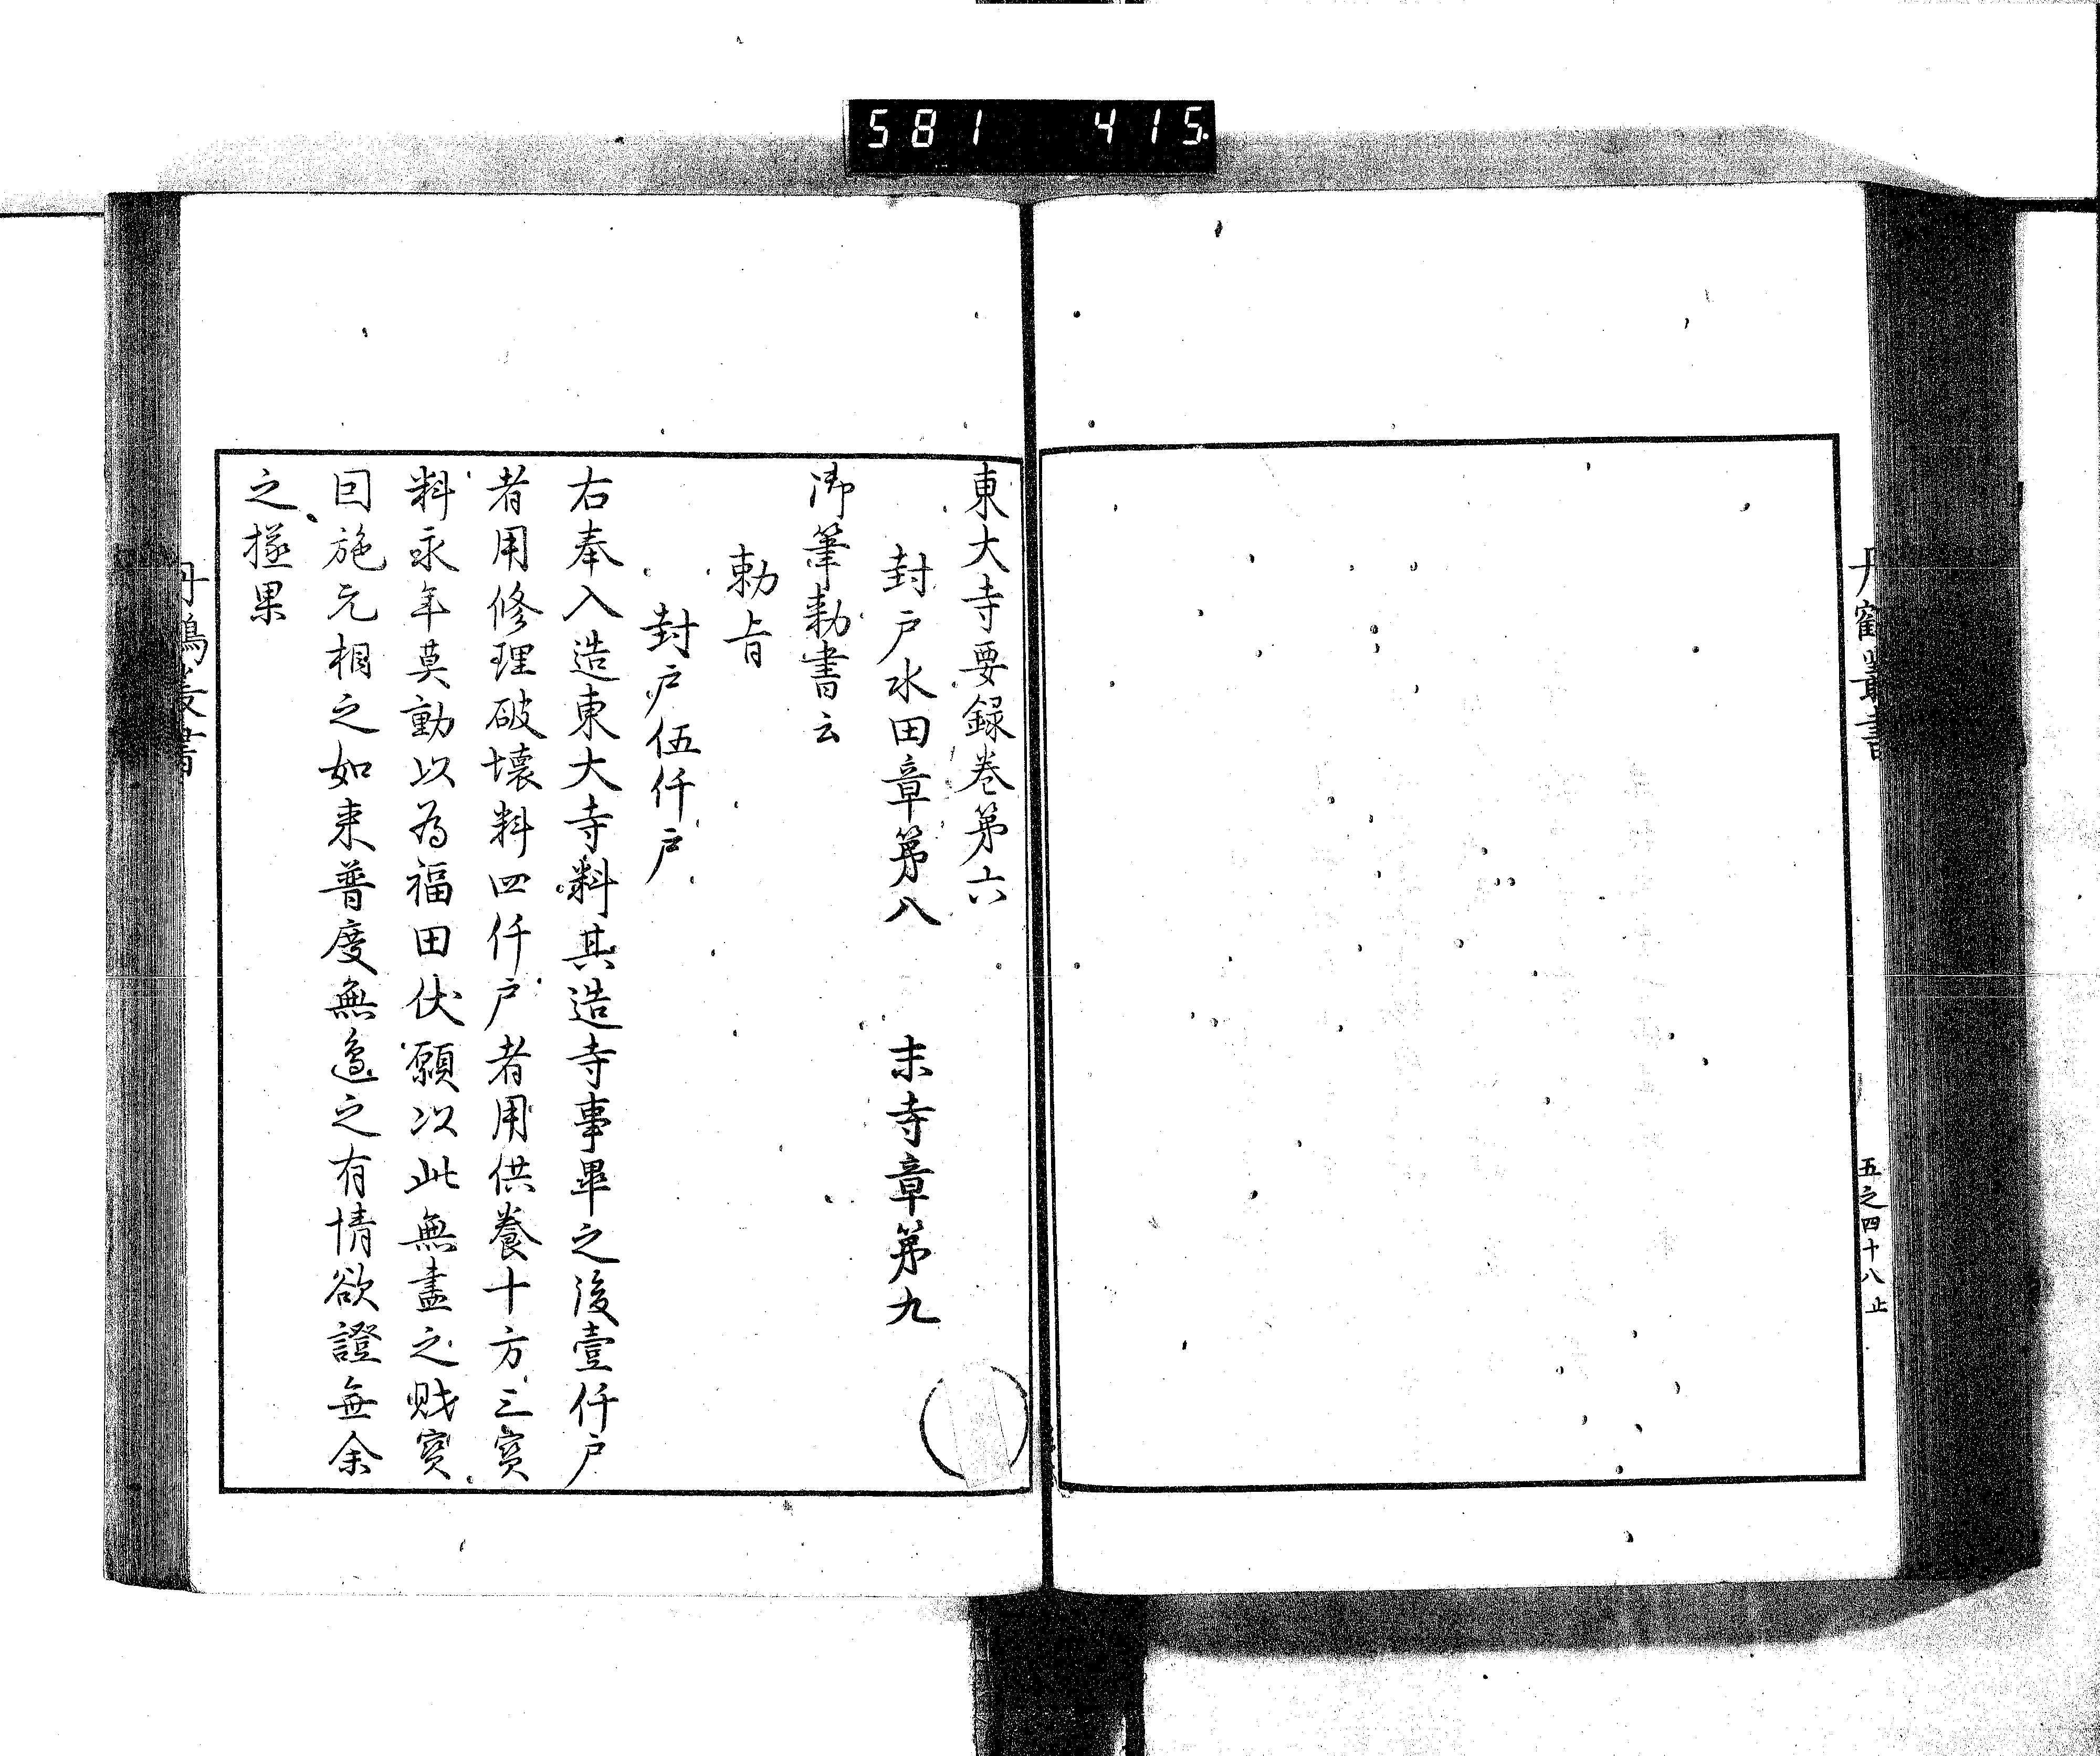 581 415
丹鶴叢書
五之四十八止
東大寺要録卷第六
封戸水田章第八 末寺章第九
御筆勅書云
勅旨
封戸伍仟戸
右奉入造東大寺料其造寺事畢之後壹仟戸
者用修理破壊料四仟戸者用供養十方三寳
料永年莫動以為福田伏願以此無盡之財寳
囙施无相之如来普度無邉之有情欲證無余
之極果
丹鶴叢書